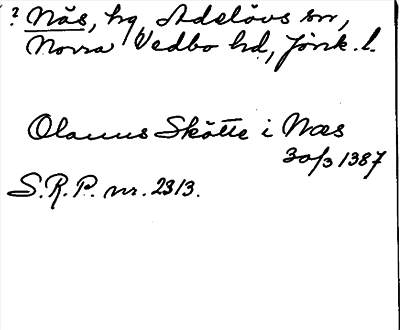 ? Näs, hg, Adelövs sn,
Norra Vedbo hd, Jönk. l.
Olauus Skötte i Næs
30/3 1387
S.R.P. nr. 2313.